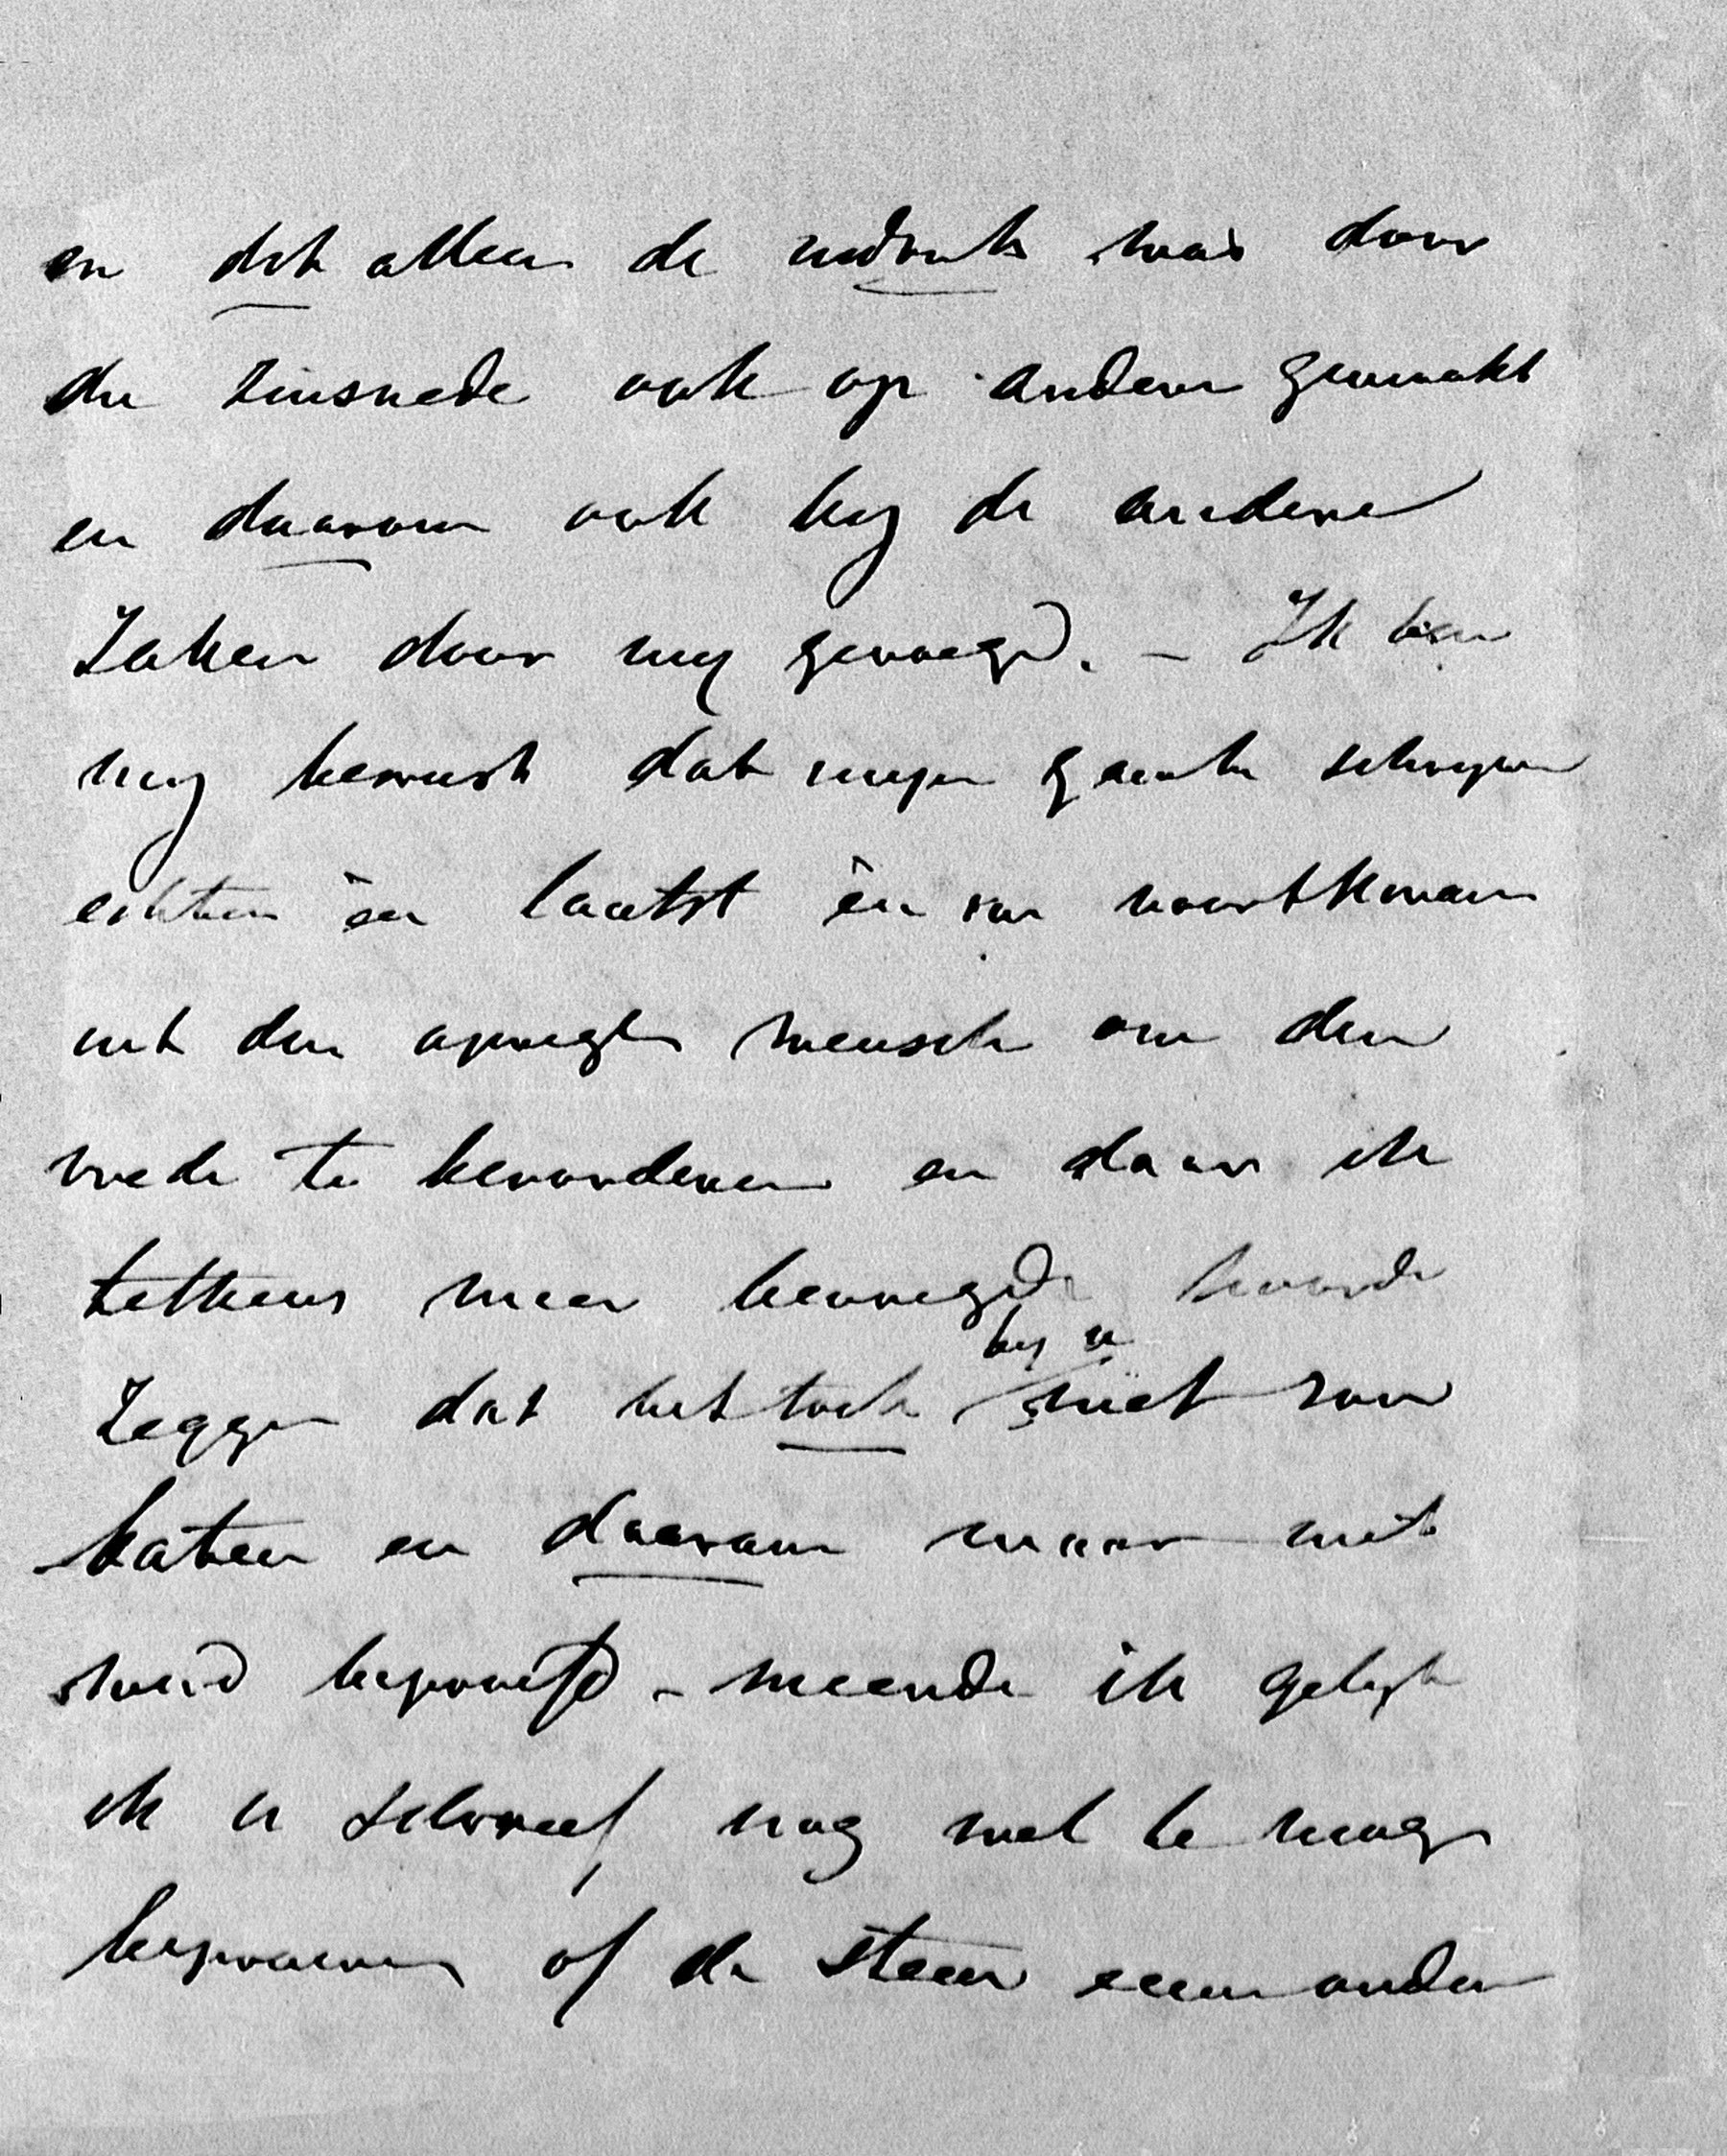 en dit alleen de indruk was door
die zinsnede ook op andere gemaakt
en daarom ook bij de andere
Zaken door mij gevoegd. – Ik ben
mij bewust dat mijn schrijven
en laatst en van voortkwam
uit den mensch om den
vrede te bevorderen en daar ik
telkens meer hoorde
Zeggen dat het toch bij u niet zou
baten en daarom maar niet
werd beproefd – meende ik gelijk
ik u schreef nog wel te mogen
beproeven of de steen een ander